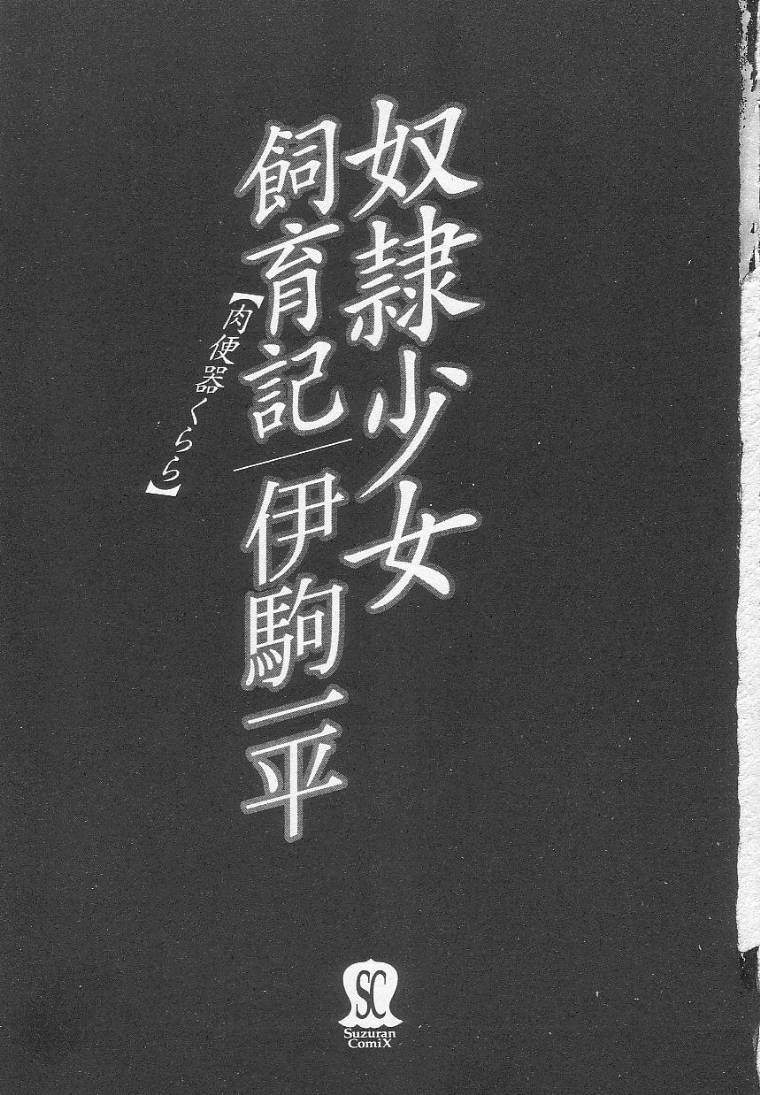 奴隷少女
飼育記/伊駒一平
【肉便器くらら】
SC
Suzuran
ComiX